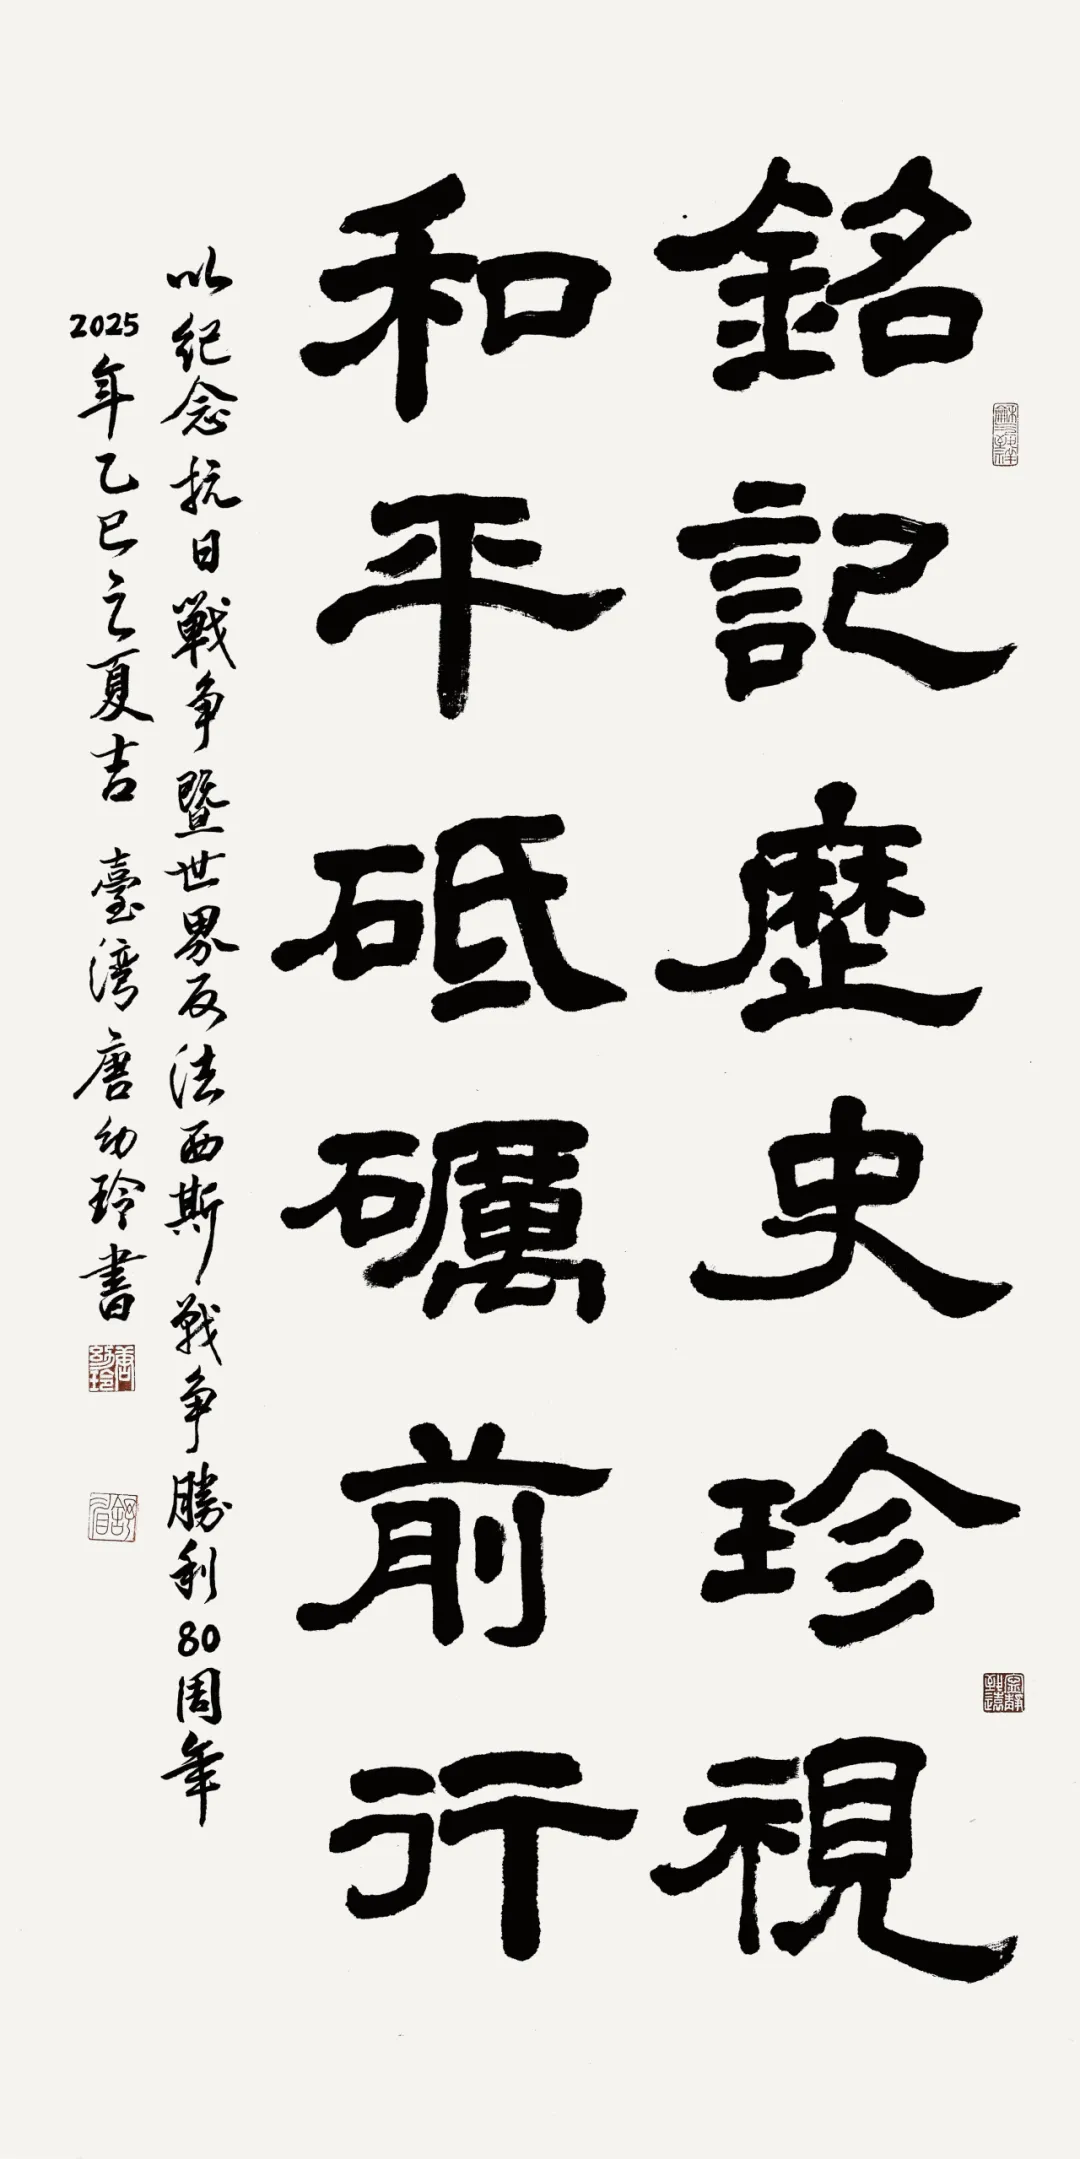 銘記歷史珍視
和平砥礪前行
以纪念抗日戰争暨世界反法西斯戰争勝利80周年
2025年乙巳之夏吉 臺湾唐幼玲書
唐幼玲